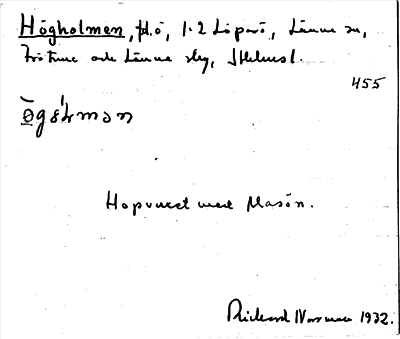 Högholmen, hl.ö, 1.2 Löparö, Länna sn,
Frötuna och Länna skg, Sthlmsl.
455
Hopvuxet med Masön.
Rickard 1932.